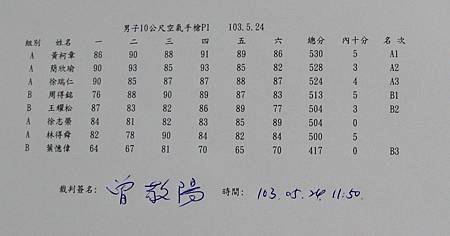 男子10公尺空氣手槍P1 103.5.24
組別 姓名 一 二 三 四 五 六 總分 內十分 名次
A 黃柯章 86 90 88 91 89 86 530 5 A1
A 簡欣瑜 90 93 85 93 85 82 528 3 A2
A 徐瑞仁 90 85 87 90 85 87 524 4 A3
B 周得銘 76 88 90 89 87 83 513 5 B1
B 王耀松 87 83 82 86 89 77 504 3 B2
A 徐志榮 84 81 82 83 85 89 504 0
A 林得舜 82 78 90 84 82 84 500 5
B 葉憶偉 64 67 81 70 65 70 417 0 B3
裁判簽名: 曾敬陽 時間: 103.05.24 11:50